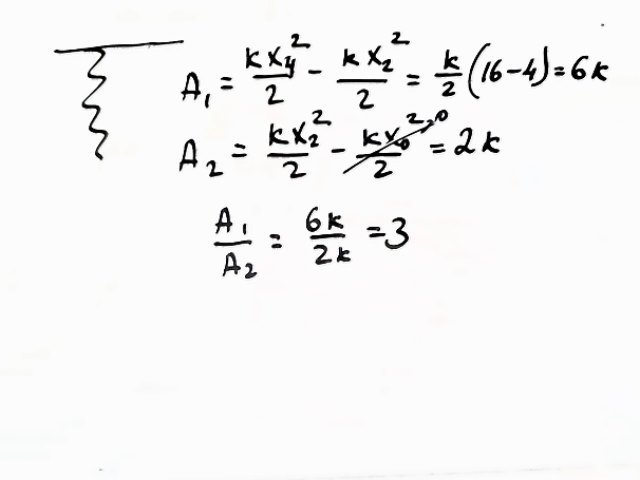 A₁ = kx₄²/2 - kx₂²/2 = k/2 (16-4) = 6k
A₂ = kx₂²/2 - kx₀²/2 →0 = 2k
A₁/A₂ = 6k/2k = 3